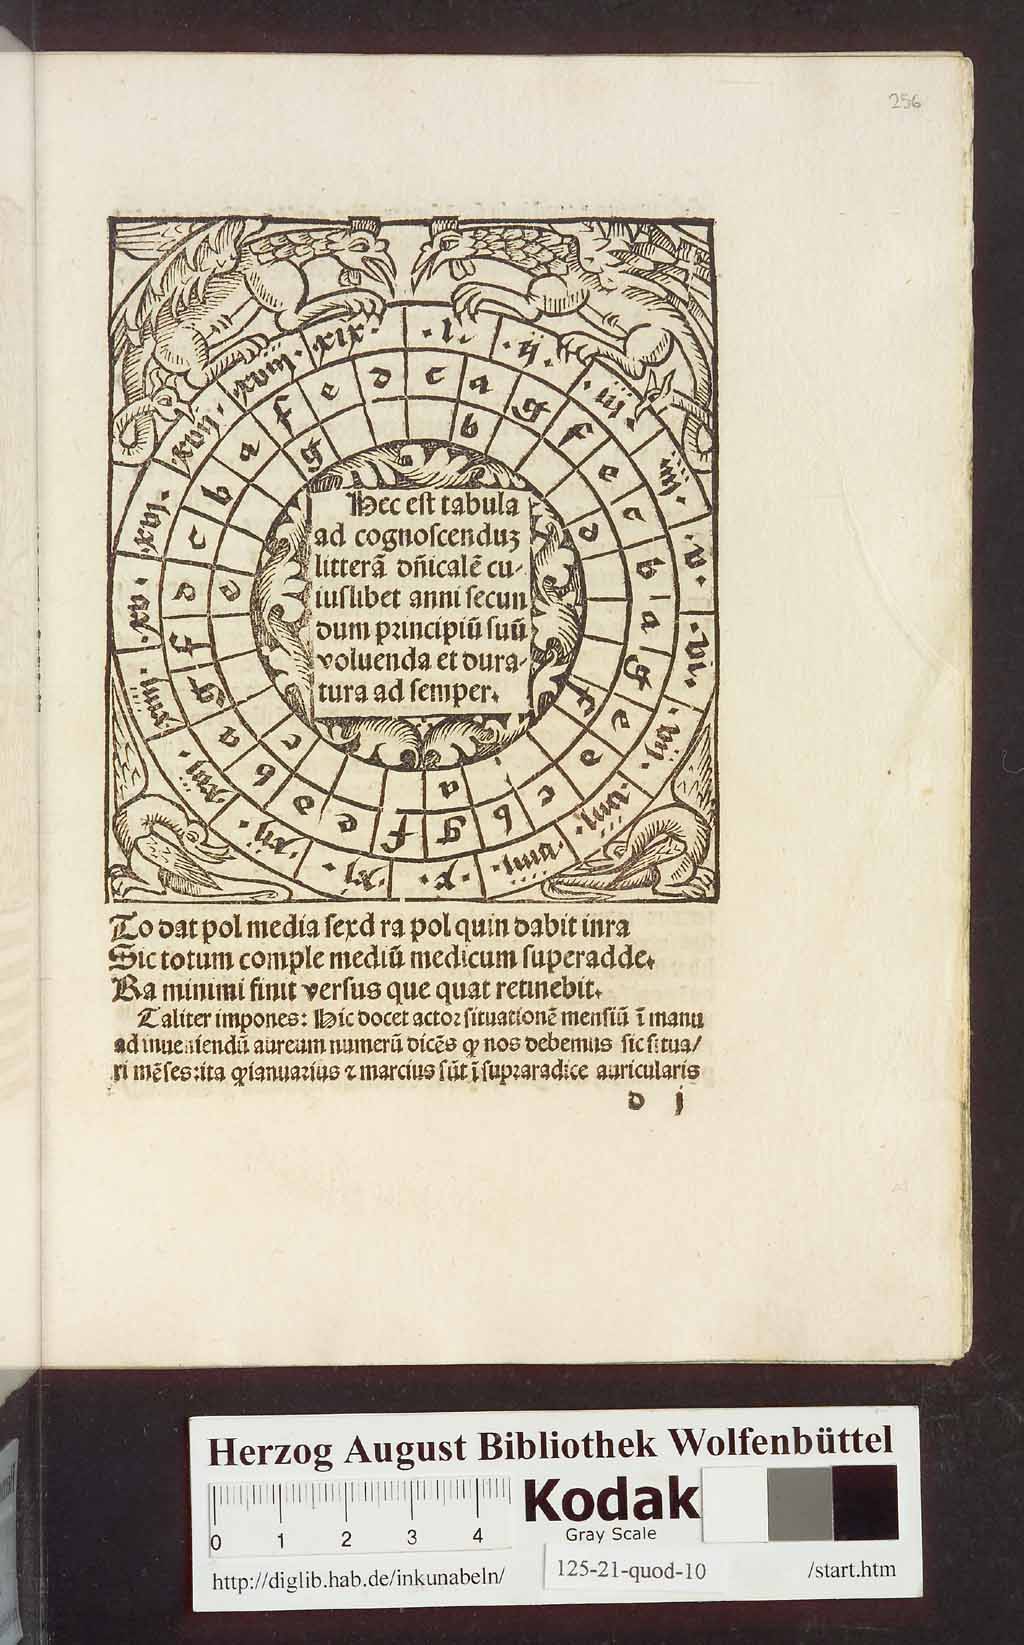 256
.i. .ij. .iij. .iiij. .v. .vi. .vij. .viij. .viiij. .x. .xi. .xij. .xiij. .xiiij. .xv. .xvi. .xvij. .xviij. .xix.
c a g f e c b a g e d c b g f e d b a g f d c b a f e d
b d f a c e g
Hec est tabula
ad cognoscenduꝫ
litterã dñicalẽ cu-
iuslibet anni secun
dum principiũ suũ
voluenda et dura-
tura ad semper.
To dat pol media sexd ra pol quin dabit inra
Sic totum comple mediũ medicum superadde.
Ra minimi finit versus que quat retinebit.
Taliter impones: Hic docet actor situationẽ mensiũ ĩ manu
ad inueniendũ aureum numerũ dicẽs ꝙ nos debemus sic situa/
ri mẽses: ita ꝙ ianuarius ⁊ marcius sũt ĩ supraradice auricularis
d j
Herzog August Bibliothek Wolfenbüttel
0 1 2 3 4
Kodak
Gray Scale
http://diglib.hab.de/inkunabeln/ 125-21-quod-10 /start.htm